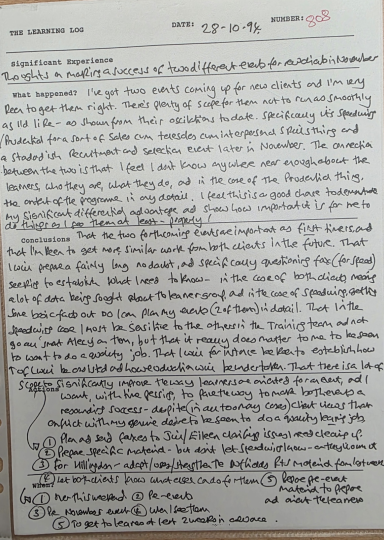 THE LEARNING LOG DATE: 28-10-94 NUMBER: 808
Significant Experience
Thoughts on making a success of two different events for new clients in November
What happened? I've got two events coming up for new clients and I'm very
keen to get them right. There's plenty of scope for them not to run as smoothly
as I'd like - as shown from their oscillations to date. Specifically its Speedwing
/Prudential for a sort of Sales cum telesales cum interpersonal skills thing and
a standard ish Recruitment and Selection event later in November. The connection
between the two is that I feel I don't know anywhere near enough about the
learners, who they are, what they do, and in the case of the Prudential thing,
the content of the programme in any detail. I feel this is a good chance to demonstrate
my significant differential advantage and show how important it is for me to
do things as I see them at least - properly!
Conclusions That the two forthcoming events are important as first timers, and
that I'm keen to get more, similar work from both clients in the future. That
I will prepare a fairly long no doubt, and specifically questioning fax (for Speed)
seeking to establish what I need to know - in the case of both clients
a lot of data being sought about the learner group, and in the case of Speedwing, getting
some basic facts out so I can plan my events (2 of them) in detail. That in the
Speedwing case I must be sensitive to the others in the Training team and not
go an sweat Alecy on them, but that it really does matter to me to be seen
to want to do a quality job. That I will for instance be keen to establish how
will be conducted and how evaluation will be undertaken. That there is a lot of
scope to significantly improve the way learners are oriented for an event, and I
Actions want, with the pressing, to pave the way to make both events a
resounding success - despite (in all too many cases) client views that
conflict with my genuine desire to be seen to do a quality learning job
① Plan and send faxes to Jim/Eileen clarifying issues I need clearing up.
② Prepare specific material - but don't let Speedwing know
③ For Hillingdon - adapt/use/strengthen material from
④ Let both clients know what else I can do for them ⑤ Prepare pre-event
When? material to prepare
① Over this weekend ② Pre-events and orient the learners
③ Pre November event ④ When I see them
⑤ To get to learners at least 2 weeks in advance.